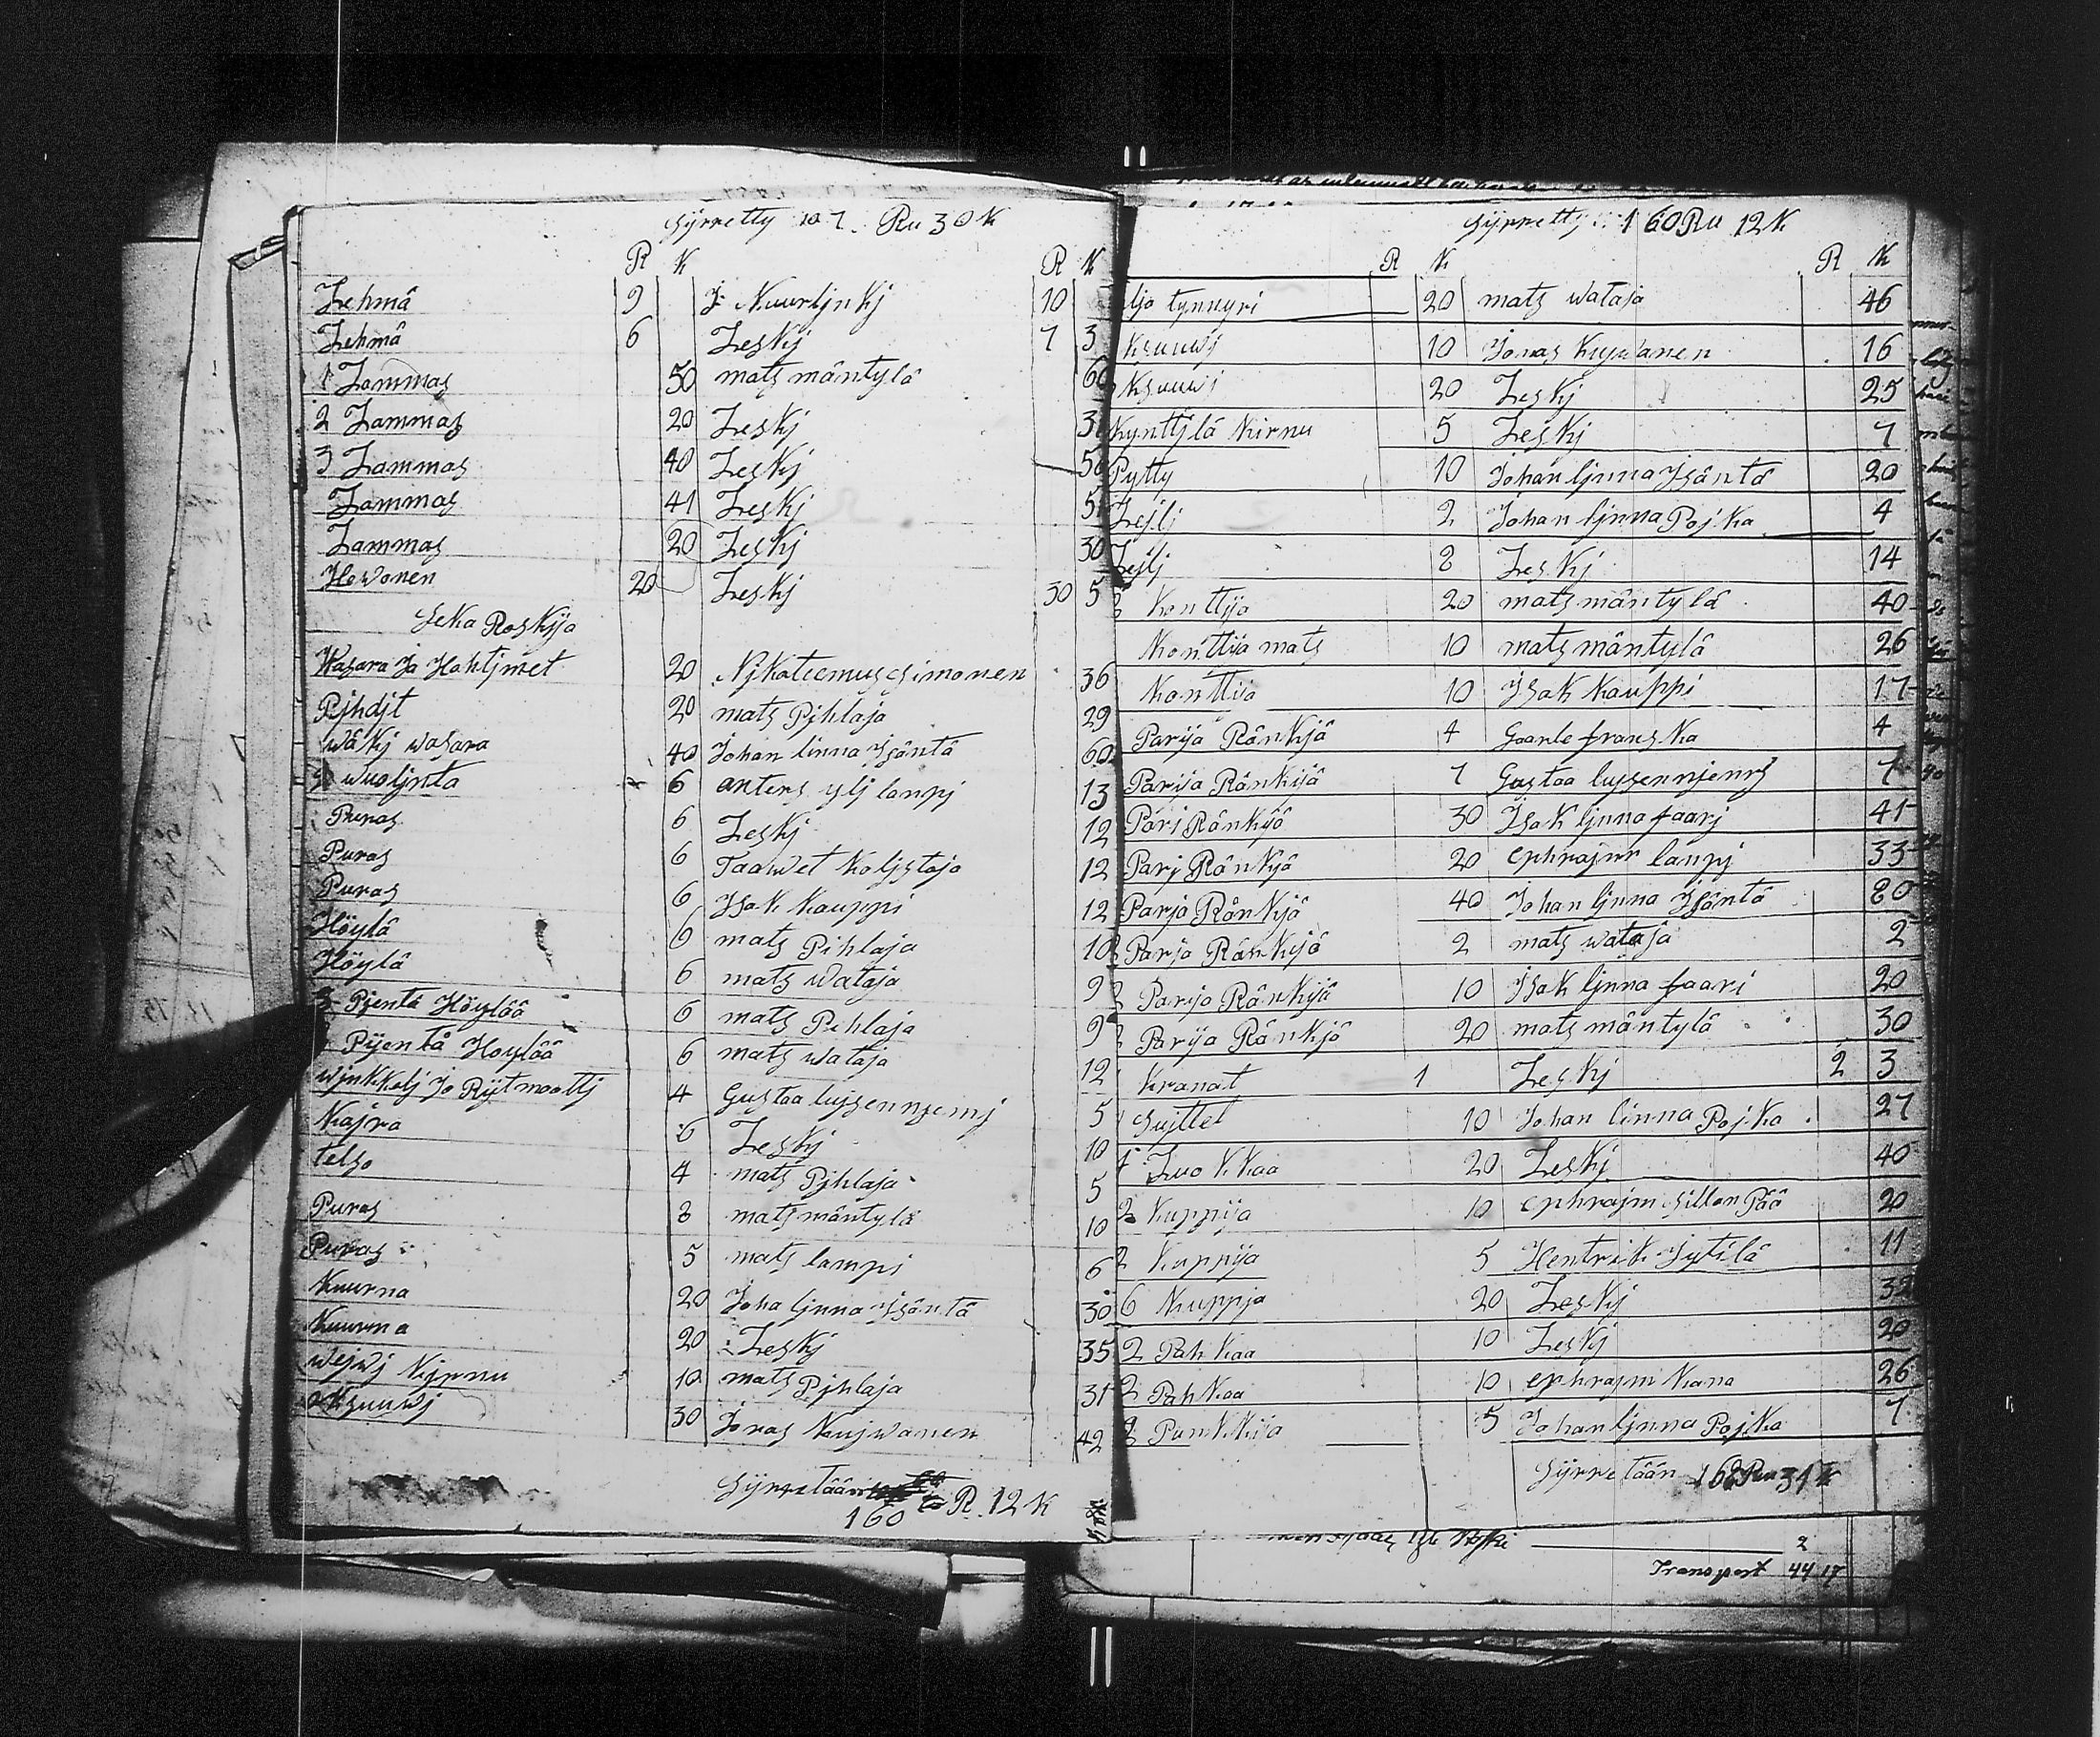 Syrretty 107. Ru 30 K
R K R K
Lehmä 9 J. Nuurljnkj 10
Lehmä 6 Leskj 7 3
1 Lammas 50 mats mäntylä 60
2 Lammas 20 Leskj 3
3 Lammas 40 Leskj 50
Lammas 41 Leskj 5
Lammas 20 Leskj 30
Hewonen 20 Leskj 30 5
Seka Roskija
Wasara ja Hohtjmet 20 Njkateemus simonen 36
Pjhdjt 20 mats Pihlaja 29
wäkj wasara 40 Johan linna Jsäntä 60
wuoljnta 6 anters ylj lampj 13
Puras 6 Leskj 12
Puras 6 Taawet Koljstaja 12
Puras 6 Jsak Kauppi 12
Höylä 6 mats Pihlaja 10
Höylä 6 mats wataja 9
3 Pjentä Höylää 6 mats Pihlaja 9
Pijentä Hoylää 6 mats wataja 12
wjnkkelj ja Rijtmoottj 4 Gustaa lujsennjemj 5
Najra 6 Leskj 10
telso 4 mats Pjhlaja 5
Puras 8 mats mäntylä 10
Puras 5 mats lampi 6
Kuurna 20 Joha ljnna Jsäntä 30
Kuurna 20 Leskj 35
wejwj Kijrnu 10 mats Pjhlaja 31
oksuuwj 30 Jonas Kujwanen 42
Syrretään 160 R. 12 K
Syrretty 160 Ru 12 K
R K R K
ljo tynnyri 20 mats wataja 46
Ksuuwj 10 Jonas Kuywanen 16
Ksuuwj 20 Leskj 25
Kynttjlä Kirnu 5 Leskj 7
Pytty 10 Johan ljnna Jsäntä 20
Lejlj 2 Johan ljnna Pojka 4
Lejlj 8 Leskj 14
Konttija 20 mats mäntylä 40
Konttija mats 10 mats mäntylä 26
Konttija 10 Jsak Kauppi 17
Parija Ränkijä 4 Gaarle franska 4
Parija Ränkijä 7 Gustaa lujsennjemj 7
Pari Ränkijä 30 Jsak ljnna faarj 41
Parj Ränkijä 20 ephrajm lampj 33
Parja Ränkjä 40 Johan ljnna Jsäntä 80
Parja Ränkijä 2 mats wataja 2
2 Parija Ränkijä 10 Jsak ljnna faari 20
Parija Ränkjä 20 mats mäntylä 30
Kranat 1 Leskj 2 3
Sujttet 10 Johan linna Pojka 27
Luokkaa 20 Leskj 40
2 Kuppija 10 ephrajm sillan Pää 20
2 Kuppija 5 Hentrik Jytilä 11
6 Kuppja 20 Leskj 32
2 Pahkaa 10 Leskj 20
2 Pahkaa 10 ephrajm Kana 26
2 Punkkija 5 Johan ljnna Pojka 7
Syrretään 168 Ru 31 K
2
Transport 44 17